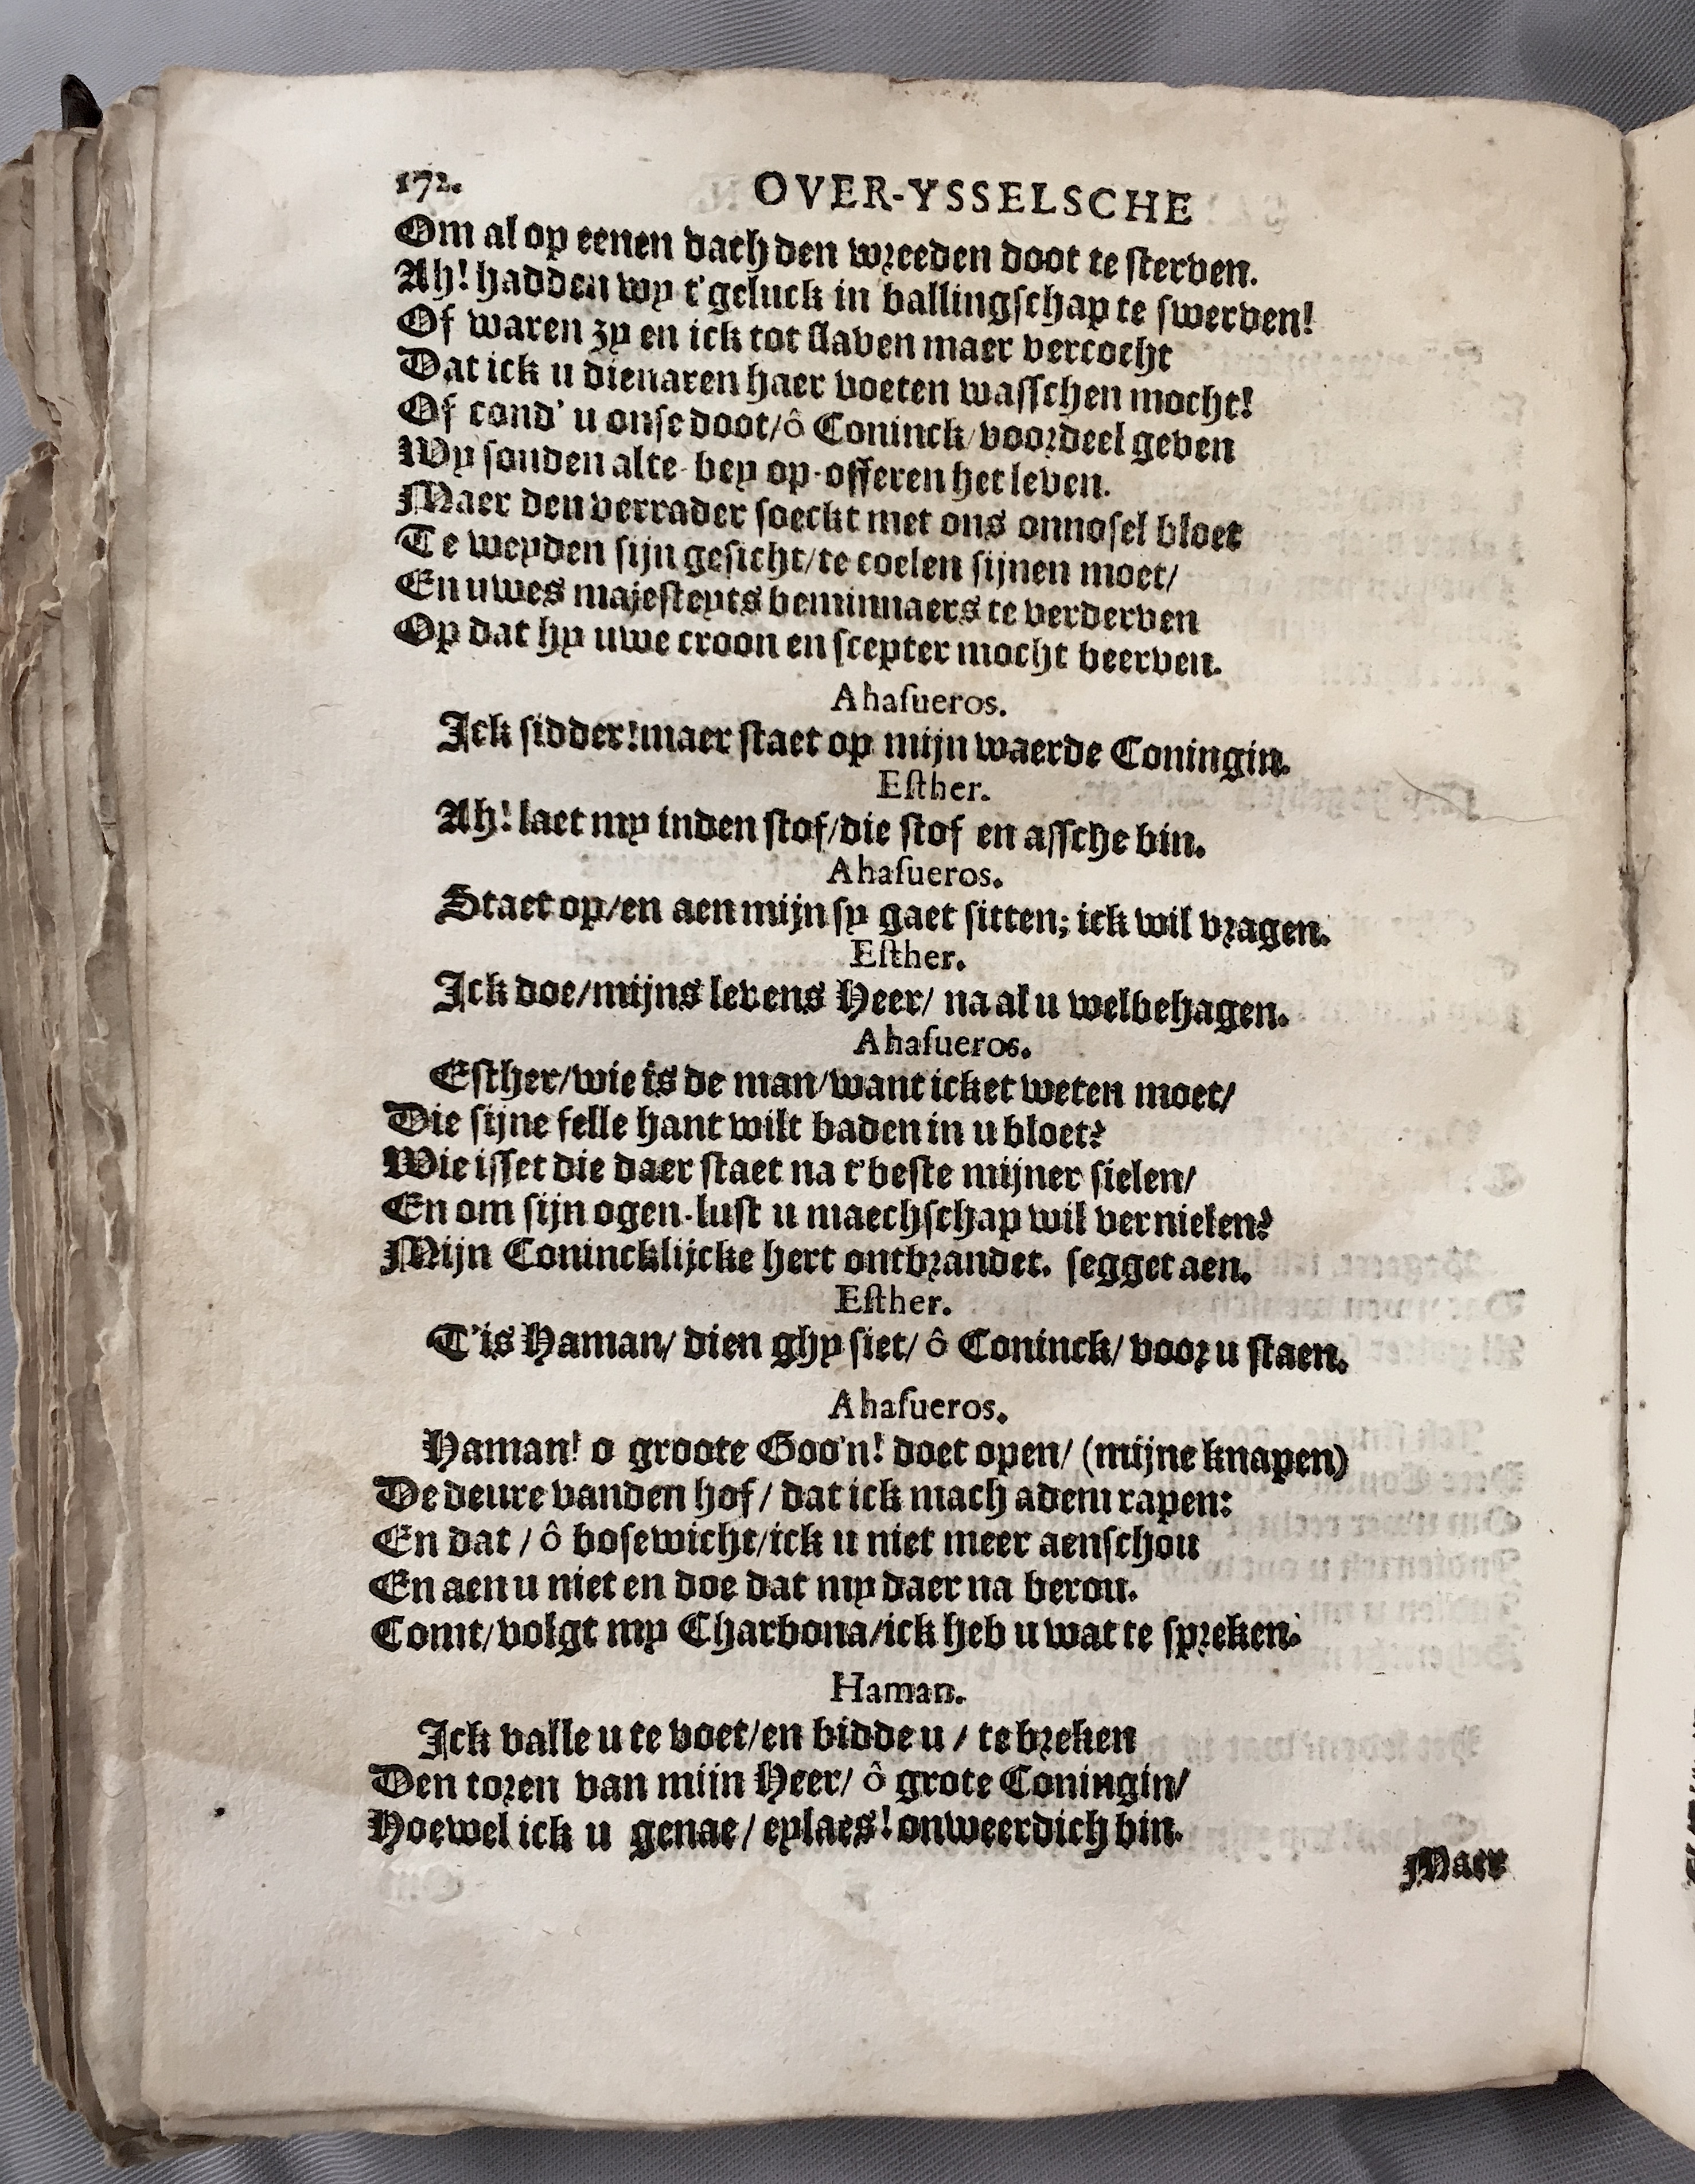 172.
OVER-YSSELSCHE
Om al op eenen dach den wreeden doot te sterven.
Ah! hadden wy t'geluck in ballingschap te swerven!
Of waren zy en ick tot slaven maer vercocht
Dat ick u dienaren haer voeten wasschen mocht!
Of cond' u onse doot/ ô Coninck/ voordeel geven
Wy souden alte-bey op-offeren het leven.
Maer den verrader soeckt met ons onnosel bloet
Te weyden sijn gesicht/ te coelen sijnen moet/
En uwes majesteyts beminnaers te verderven
Op dat hy uwe croon en scepter mocht beerven.
Ahasueros.
Ick sidder! maer staet op mijn waerde Coningin.
Esther.
Ah! laet my inden stof/ die stof en assche bin.
Ahasueros.
Staet op/ en aen mijn sy gaet sitten; ick wil vragen.
Esther.
Ick doe/ mijns levens Heer/ na al u welbehagen.
Ahasueros.
Esther/ wie is de man/ want icket weten moet/
Die sijne felle hant wilt baden in u bloet?
Wie isset die daer staet na t'beste mijner sielen/
En om sijn ogen-lust u maechschap wil vernielen?
Mijn Conincklijcke hert ontbrandet. segget aen.
Esther.
T'is Haman/ dien ghy siet/ ô Coninck/ voor u staen.
Ahasueros.
Haman! o groote Goo'n! doet open/ (mijne knapen)
De deure vanden hof/ dat ick mach adem rapen:
En dat/ ô bosewicht/ ick u niet meer aenschou
En aen u niet en doe dat my daer na berou.
Comt/ volgt my Charbona/ ick heb u wat te spreken.
Haman.
Ick valle u te voet/ en bidde u/ te breken
Den toren van mijn Heer/ ô grote Coningin/
Hoewel ick u genae/ eylaes! onweerdich bin.
Maer